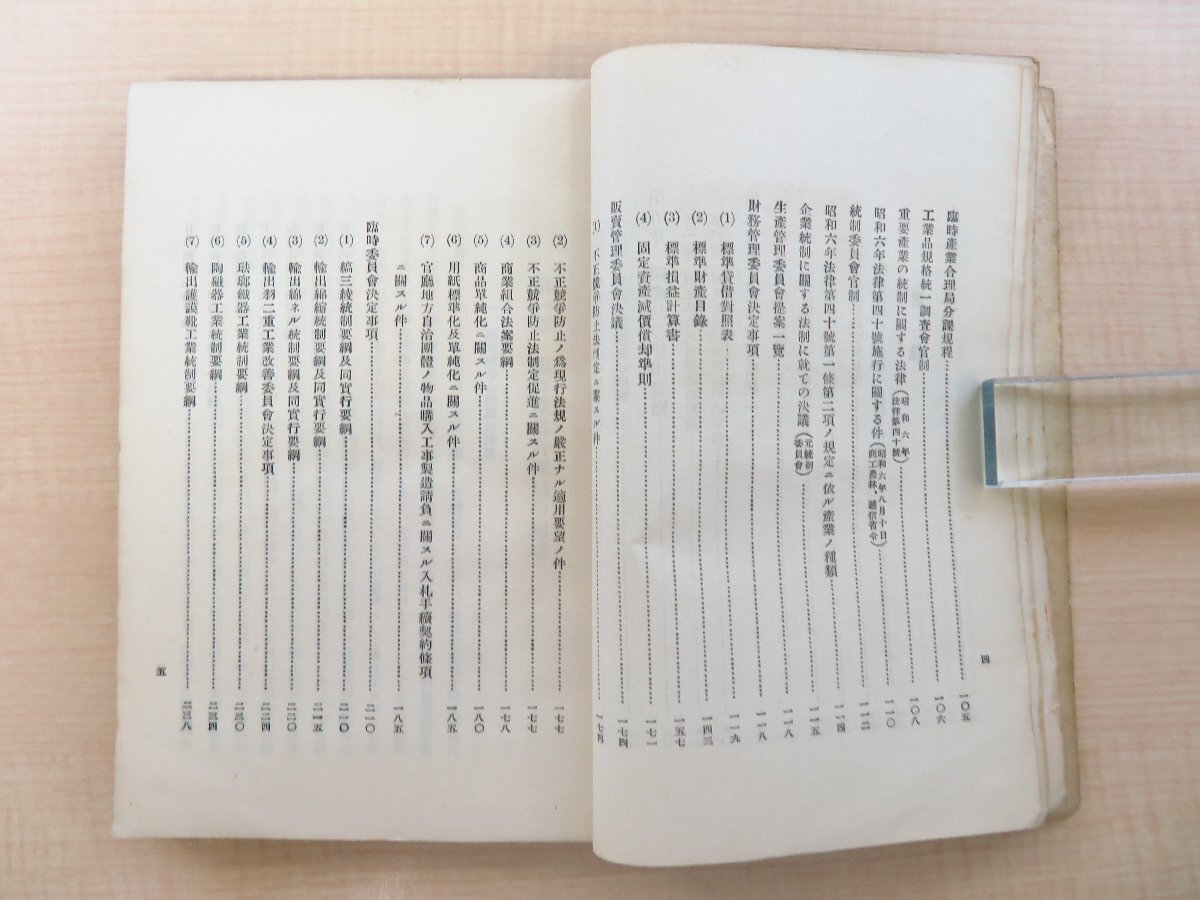 臨時産業合理局分課規程…………一〇五
工業品規格統一調査會官制…………一〇六
重要産業の統制に關する法律(昭和六年法律第四十號)…………一〇八
昭和六年法律第四十號施行に關する件(昭和六年八月十日商工農林、遞信省令)…………一一〇
統制委員會官制…………一一二
昭和六年法律第四十號第一條第二項ノ規定ニ依ル産業ノ種類…………一一四
企業統制に關する法制に就ての決議(元統制委員會)…………一一五
生産管理委員會提案一覽…………一一八
財務管理委員會決定事項…………一一八
(1) 標準貸借對照表…………一一九
(2) 標準財産目錄…………一四三
(3) 標準損益計算書…………一五七
(4) 固定資産減價償却準則…………一七一
販賣管理委員會決議…………一七四
(1) 不正競爭防止法制定ニ關スル件…………一七四
四
(2) 不正競爭防止ノ爲現行法規ノ嚴正ナル適用要望ノ件…………一七七
(3) 不正競爭防止法制定促進ニ關スル件…………一七七
(4) 商業組合法案要綱…………一七八
(5) 商品單純化ニ關スル件…………一八〇
(6) 用紙標準化及單純化ニ關スル件…………一八五
(7) 官廳地方自治團體ノ物品購入工事製造請負ニ關スル入札手續契約條項
ニ關スル件…………一八五
臨時委員會決定事項…………二一〇
(1) 縞三綾統制要綱及同實行要綱…………二一〇
(2) 輸出綿縮統制要綱及同實行要綱…………二一五
(3) 輸出綿ネル統制要綱及同實行要綱…………二二〇
(4) 輸出羽二重工業改善委員會決定事項…………二二四
(5) 琺瑯鐵器工業統制要綱…………二三〇
(6) 陶磁器工業統制要綱…………二三四
(7) 輸出護謨靴工業統制要綱…………二三八
五